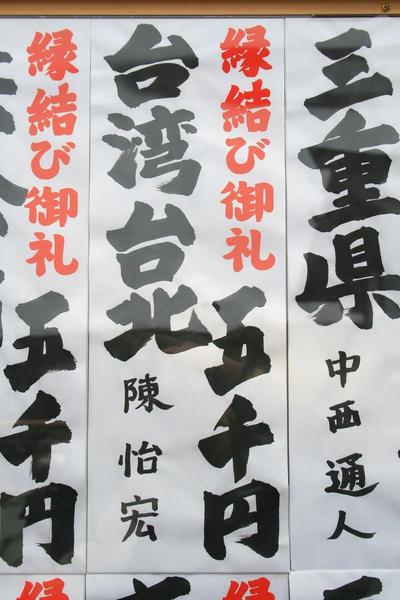 三重県
中西通人
縁結び御礼
五千円
台湾台北
陳怡宏
縁結び御礼
五千円
縁
縁